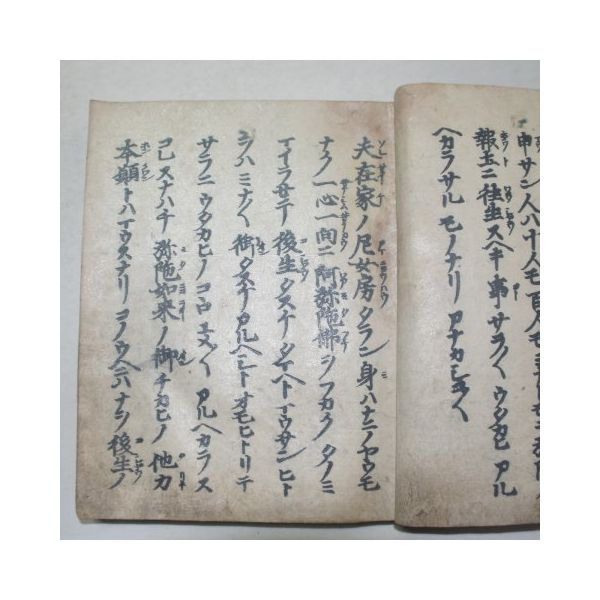 申サン人ハ十人モ百人モ
報土ニ往生スヘキ事サラ〱ウタカヒアル
ヘカラサルモノナリアナカシコ〱
夫在家ノ尼女房タラン身ハナニノヤウモ
ナク一心一向ニ阿弥陀佛ヲフカクタノミ
マイラセテ後生タスケタマヘトマウサンヒト
ヲハミナ〱御タスケアルヘシトオモヒトリテ
サラニウタカヒノコヽロユメ〱アルヘカラス
コレスナハチ弥陀如来ノ御チカヒノ他力
本願トハマウスナリコノウヘニハナヲ後生ノ